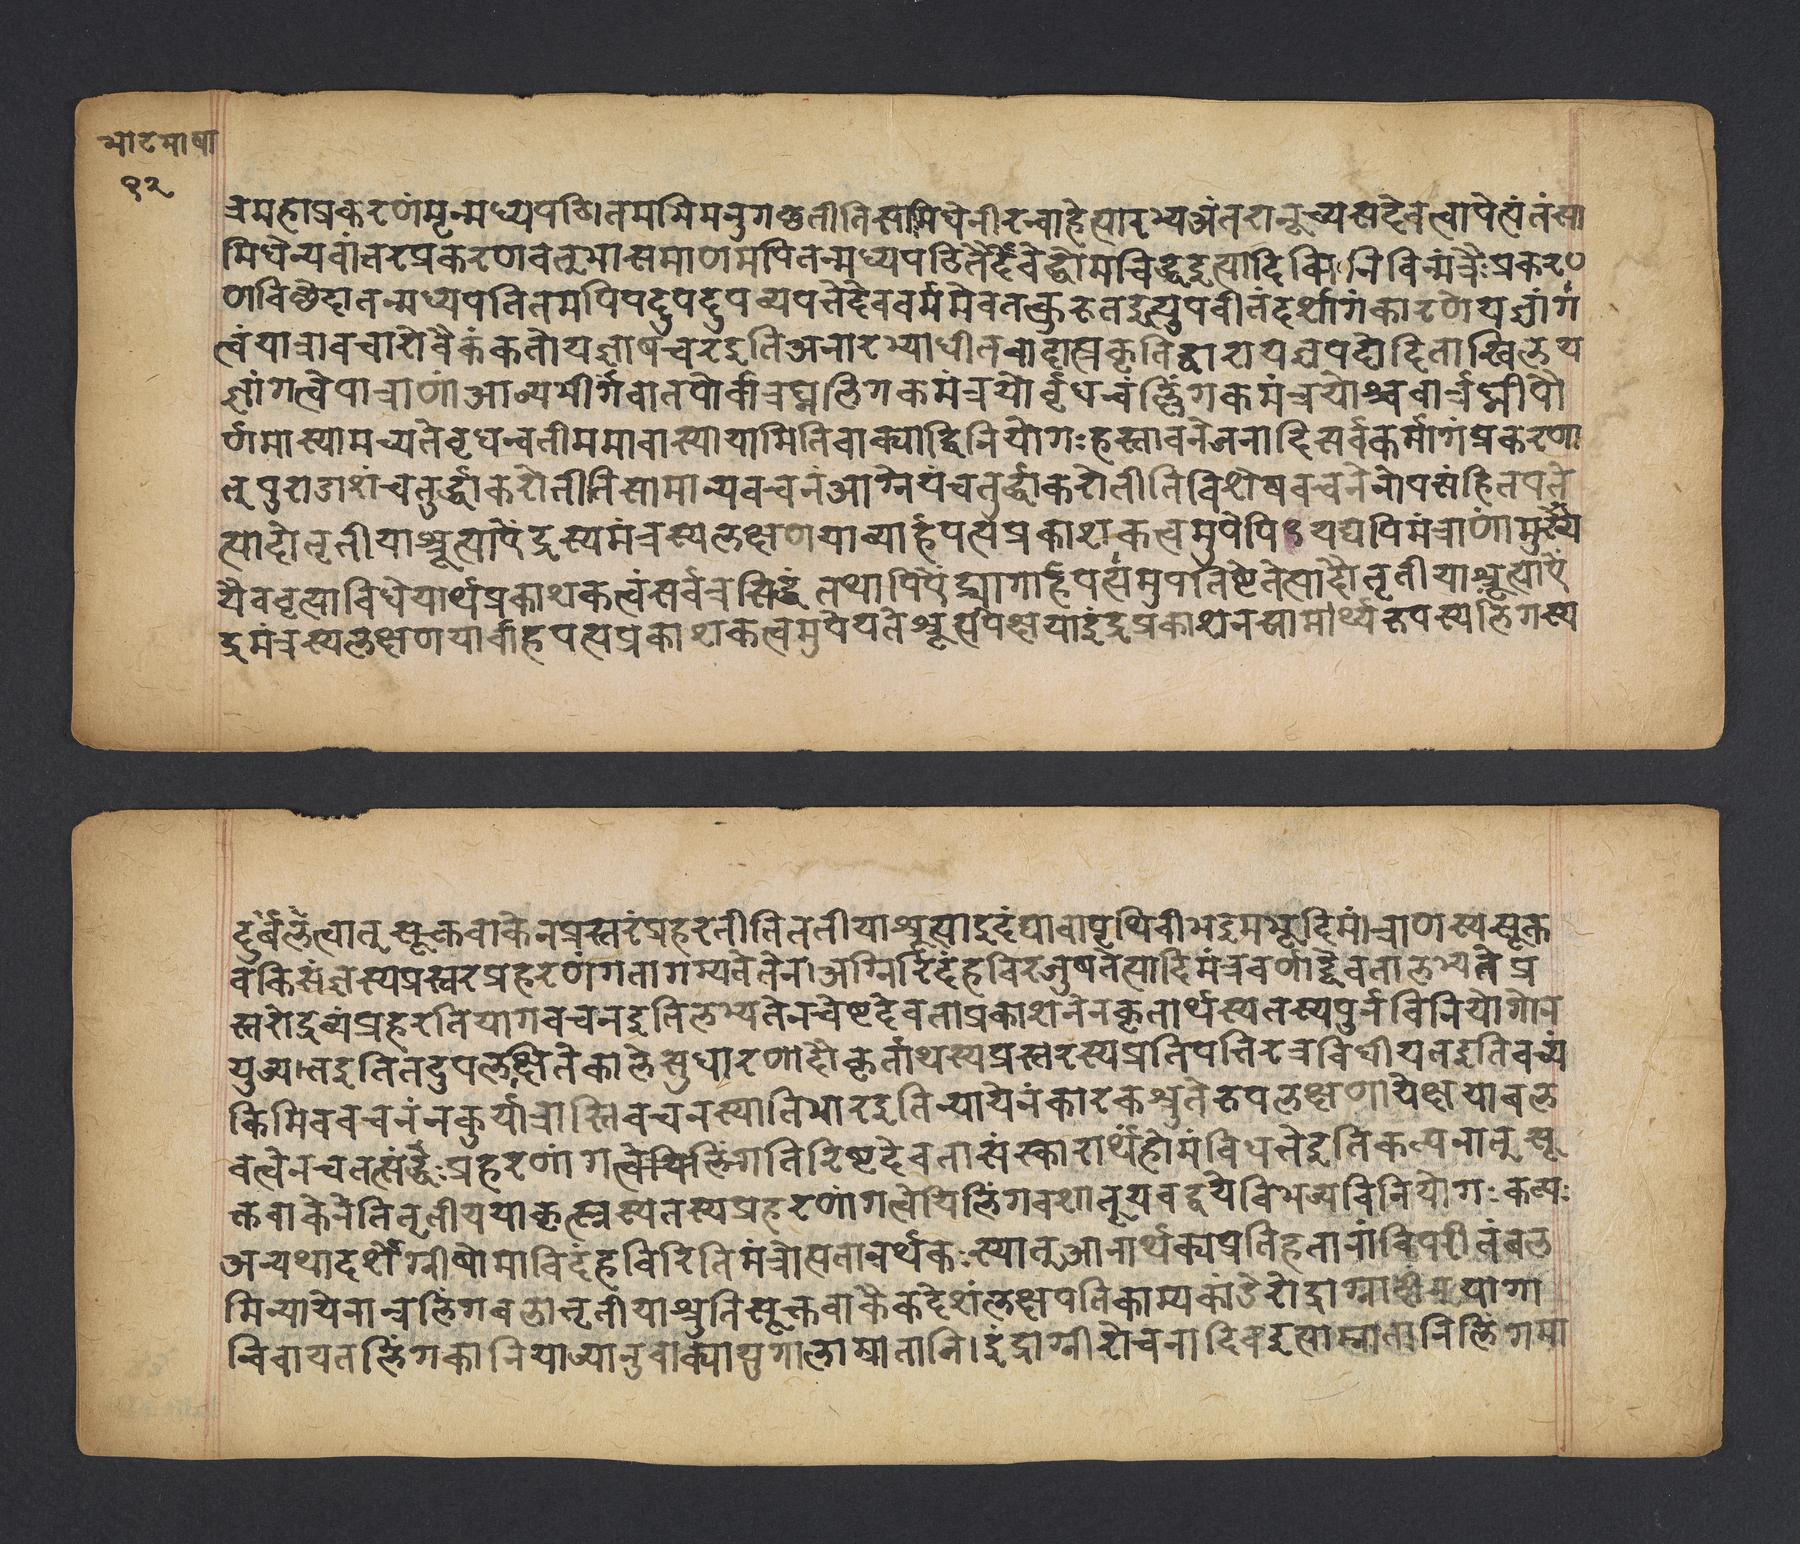 भाटभाषा
१२
त्रमहाप्रकरणंमृन्मध्यपठितमभिमनुगछतीतिसामिधेनीरन्वाहेत्यारभ्यअंतरानूच्यसदेवत्वापेत्यंतंसा
मिधेन्यवांतरप्रकरणवत्तुभासमाणमपितन्मध्यपठितैर्देवेद्धोमन्विद्धइत्यादिनिविन्मंत्रैःप्रकर
णविछेदातन्मध्यपतितमपिपद्युपव्ययतेदेवर्ममेवतत्कुरुतइत्युपवीतंदर्शांगंकारणेयज्ञांग
त्वंयात्रावचारोवैकंकतोयज्ञाषचरइतिअनारभ्याधीतवादात्प्रकृतिद्वारायज्ञपदोदिताखिलय
ज्ञांगत्वेपात्राणांआज्यभीर्गवातपोर्वात्रघ्नलिंगकमंत्रयोर्वृधन्वंल्लिंगकमंत्रयोश्चवार्त्रघ्नीपौ
र्णमास्यामच्यतेवृधन्वतीममावास्यायामितिवाक्याद्विनियोगःहस्तावनेजनादिसर्वकर्मांगंप्रकरणा
त्पुराडाशंचतुर्द्धाकरोतीतिसामान्यवचनंआग्नेयंचतुर्द्धाकरोतीतिविशेषवचनेनोपसंहितपते
त्यादोतृतीयाश्रूत्याऐंद्रस्यमंत्रस्यलक्षणयाव्यार्हपत्यप्रकाशकत्वमुपेपियद्यपिमंत्राणांमुख्य
यैववृत्याविधेयार्थप्रकाशकत्वंसर्वत्रसिद्धंतथापिऐंद्यागार्हपत्यमुपतिष्टेतेत्यादौतृतीयाश्रूत्याऐं
द्रमंत्रस्यलक्षणयार्वाहपत्यप्रकाशकत्वमुपेयतेश्रूत्यपेक्षयाइंद्रप्रकाशनसामार्थ्यरूपस्यलिंगस्य
दुर्बलत्वात्सूक्तवाकेनप्रस्तरंप्रहरतीतिततीयाश्रूत्याइदंद्यावापृथिवीभद्रमभूदिमंत्राणस्यसूक्त
वकिसंज्ञस्यप्रस्वरप्रहरणंगतागम्यतेतेनाअग्निर्रिदंहविरजुषतेत्यादिमंत्रवर्णाद्दैवतालभ्यतेप्र
स्तरोद्रव्यंप्रहरतियागवचनइतिलभ्यतेनचेष्टदेवताप्रकाशनेनकृतार्थस्यतस्यपुर्नविनियोगोन
युज्यातइतितदुपलक्षितेकालेसुधारणादौकृतार्थस्यप्रस्तरस्यप्रतिपत्तिरत्रविधीयतइतिवच्यं
किमिववचनंनकुर्यान्नास्तिवचनस्यातिभारइतिन्यायेनंकारकश्रुतेरुपलक्षणायेक्षयाबल
वत्वेनचतत्संद्धेःप्रहरणांगत्वेपिलिंगतिरिष्टदेवतासंस्कारार्थंहोमंविधत्तेइतिकल्पनात्सू
क्तवाकेनेतितृतीययाकृत्स्नस्यतस्यप्रहरणांगत्वेपिलिंगवशात्तूयवद्वयेविभज्यविनियोगःकल्पः
अन्यथादर्शेग्नीषोमाविदंहविरितिमंत्रोसतानर्थकःस्यात्आनार्थक्यप्रतिहतानांविपरीतंबल
मिन्यायेनान्नलिंगबलात्तृतीयाश्रुतिसूक्तवाकैकदेशंलक्षपतिकाम्यकांडेरोद्राग्नायागा
न्विवायतल्लिंगकानियाज्यानुवाक्यायुगालाम्नातानि।इंद्राग्नीरोचनादिवइत्याम्नातानिलिंगमा